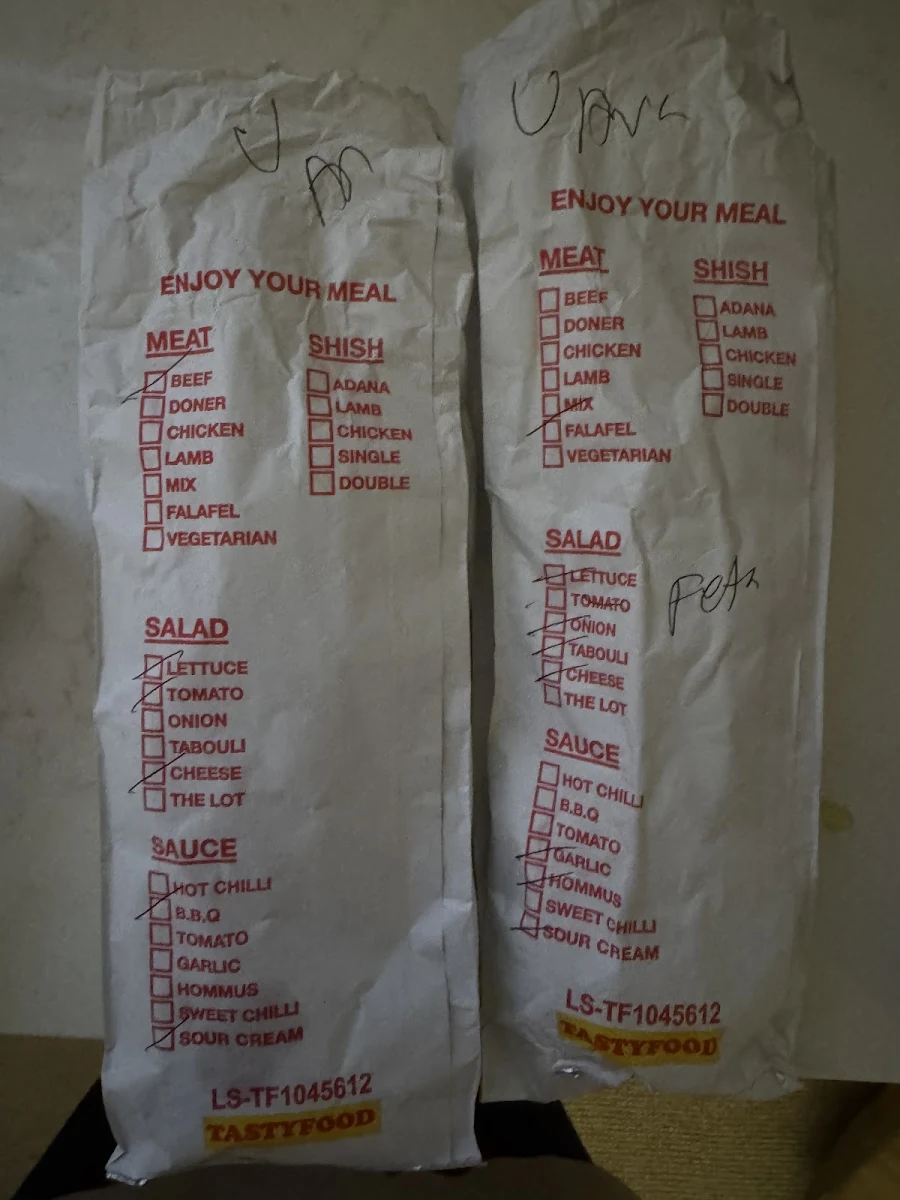 ENJOY YOUR MEAL
MEAT
BEEF
DONER
CHICKEN
LAMB
MIX
FALAFEL
VEGETARIAN
SHISH
ADANA
LAMB
CHICKEN
SINGLE
DOUBLE
SALAD
LETTUCE
TOMATO
ONION
TABOULI
CHEESE
THE LOT
SAUCE
HOT CHILLI
B.B.Q
TOMATO
GARLIC
HOMMUS
SWEET CHILLI
SOUR CREAM
LS-TF1045612
TASTYFOOD
ENJOY YOUR MEAL
MEAT
BEEF
DONER
CHICKEN
LAMB
MIX
FALAFEL
VEGETARIAN
SHISH
ADANA
LAMB
CHICKEN
SINGLE
DOUBLE
SALAD
LETTUCE
TOMATO
ONION
TABOULI
CHEESE
THE LOT
SAUCE
HOT CHILLI
B.B.Q
TOMATO
GARLIC
HOMMUS
SWEET CHILLI
SOUR CREAM
LS-TF1045612
TASTYFOOD